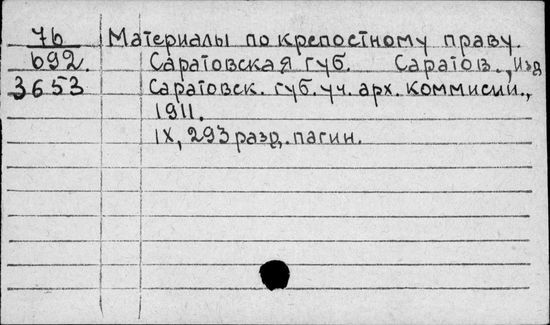 76 Материалы по крепостному праву.
692. Саратовская губ. Саратов., Изд
3653 Саратовск. губ. уч. арх. коммисии.,
1911.
IX, 293 разд. пагин.